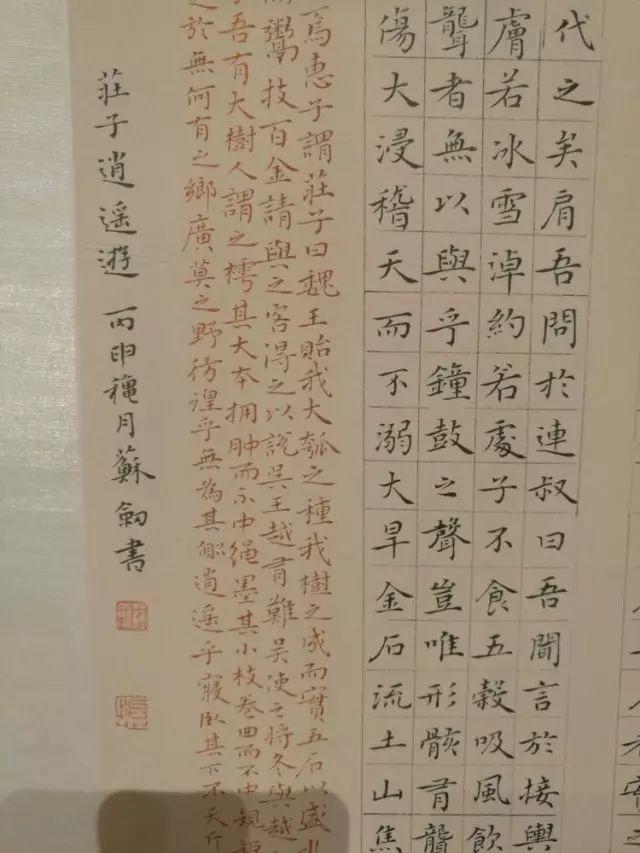 代之矣肩吾問於連叔曰吾聞言於接輿
膚若冰雪淖約若處子不食五穀吸風飲
聾者無以與乎鐘鼓之聲豈唯形骸有聾
傷大浸稽天而不溺大旱金石流土山焦
焉惠子謂莊子曰魏王貽我大瓠之種我樹之成而實五石以盛水
鬻技百金請與之客得之以說吳王越有難吳使之將冬與越
子吾有大樹人謂之樗其大本擁肿而不中繩墨其小枝卷曲而不中規
之於無何有之鄉廣莫之野彷徨乎無為其側逍遥乎寢臥其下不夭斤
莊子逍遥遊 丙申穐月蘇劍書